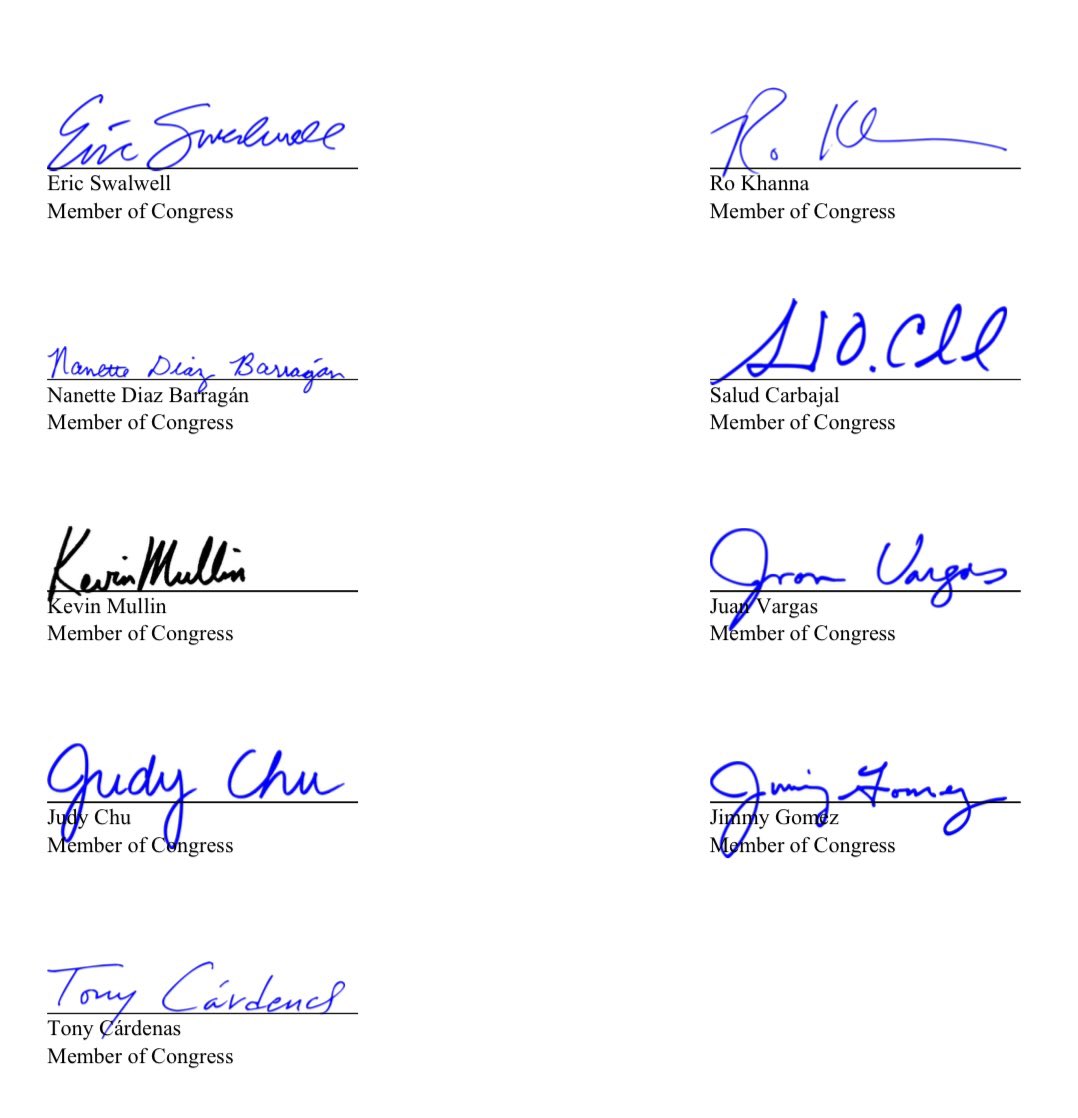 Eric Swalwell
Eric Swalwell
Member of Congress
R. Kh
Ro Khanna
Member of Congress
Nanette Diaz Barragán
Nanette Diaz Barragán
Member of Congress
Salud Carbajal
Member of Congress
Kevin Mullin
Kevin Mullin
Member of Congress
Juan Vargas
Juan Vargas
Member of Congress
Judy Chu
Judy Chu
Member of Congress
Jimmy Gomez
Jimmy Gomez
Member of Congress
Tony Cárdenas
Tony Cárdenas
Member of Congress